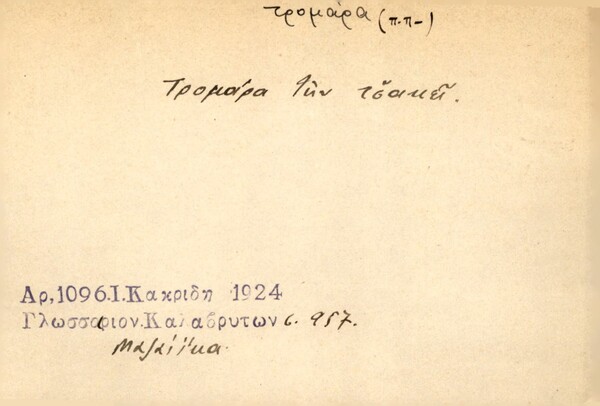 τρομάρα (π.π-)
Τρομάρα τὴν τσακεῖ.
Αρ,1096.Ι.Κακριδη 1924
Γλωσσαριον.Καλαβρυτων σ. 957.
Μαζαίικα.